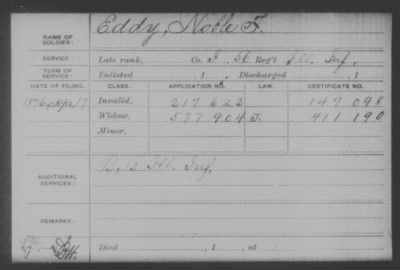 NAME OF SOLDIER: Eddy, Noble F.
SERVICE: Late rank, Co. I, 36 Reg't Ill. Inf.
TERM OF SERVICE: Enlisted , 1 , Discharged , 1
DATE OF FILING. CLASS. APPLICATION NO. LAW. CERTIFICATE NO.
Apr. 17 Invalid, 217 622 147 098
Widow, 577 904 411 190
Minor,
ADDITIONAL SERVICES: Ill. Inf.
REMARKS:
Died , 1 , at